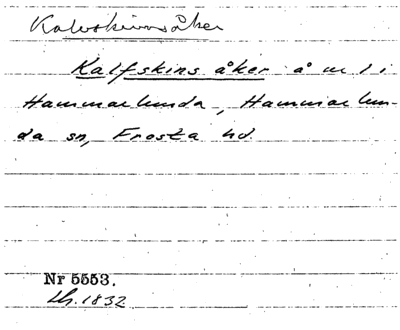 Kalvskinnsåker
Kalfskins åker å n 1 i
Hammarlunda, Hammarlun-
da sn, Frosta hd.
Nr 5553.
Lh. 1832